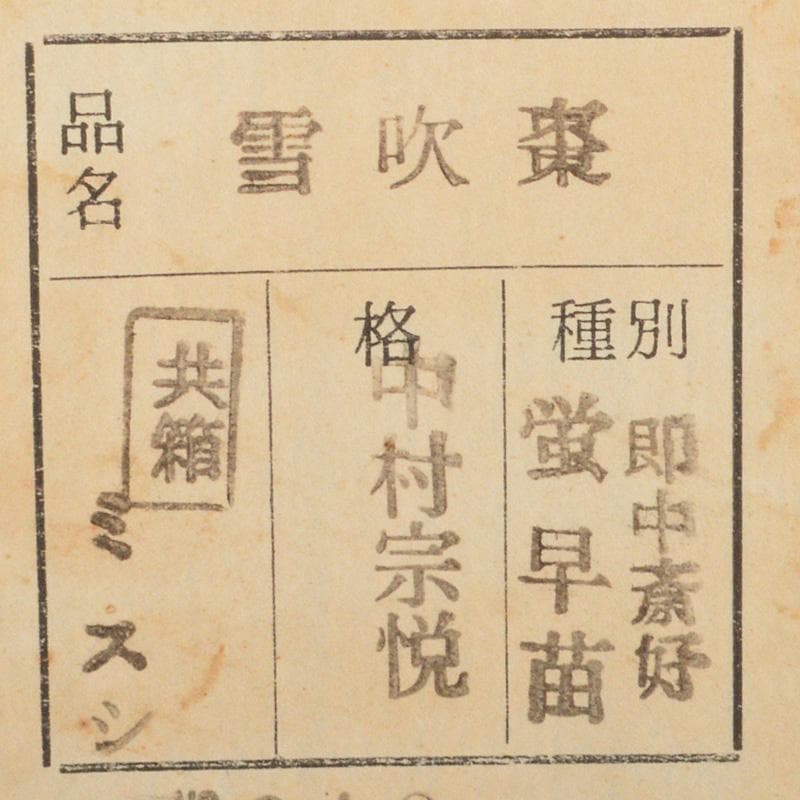 品名
棗吹雪
種別
即中斎好
蛍早苗
格
中村宗悦
共箱
ミスシ